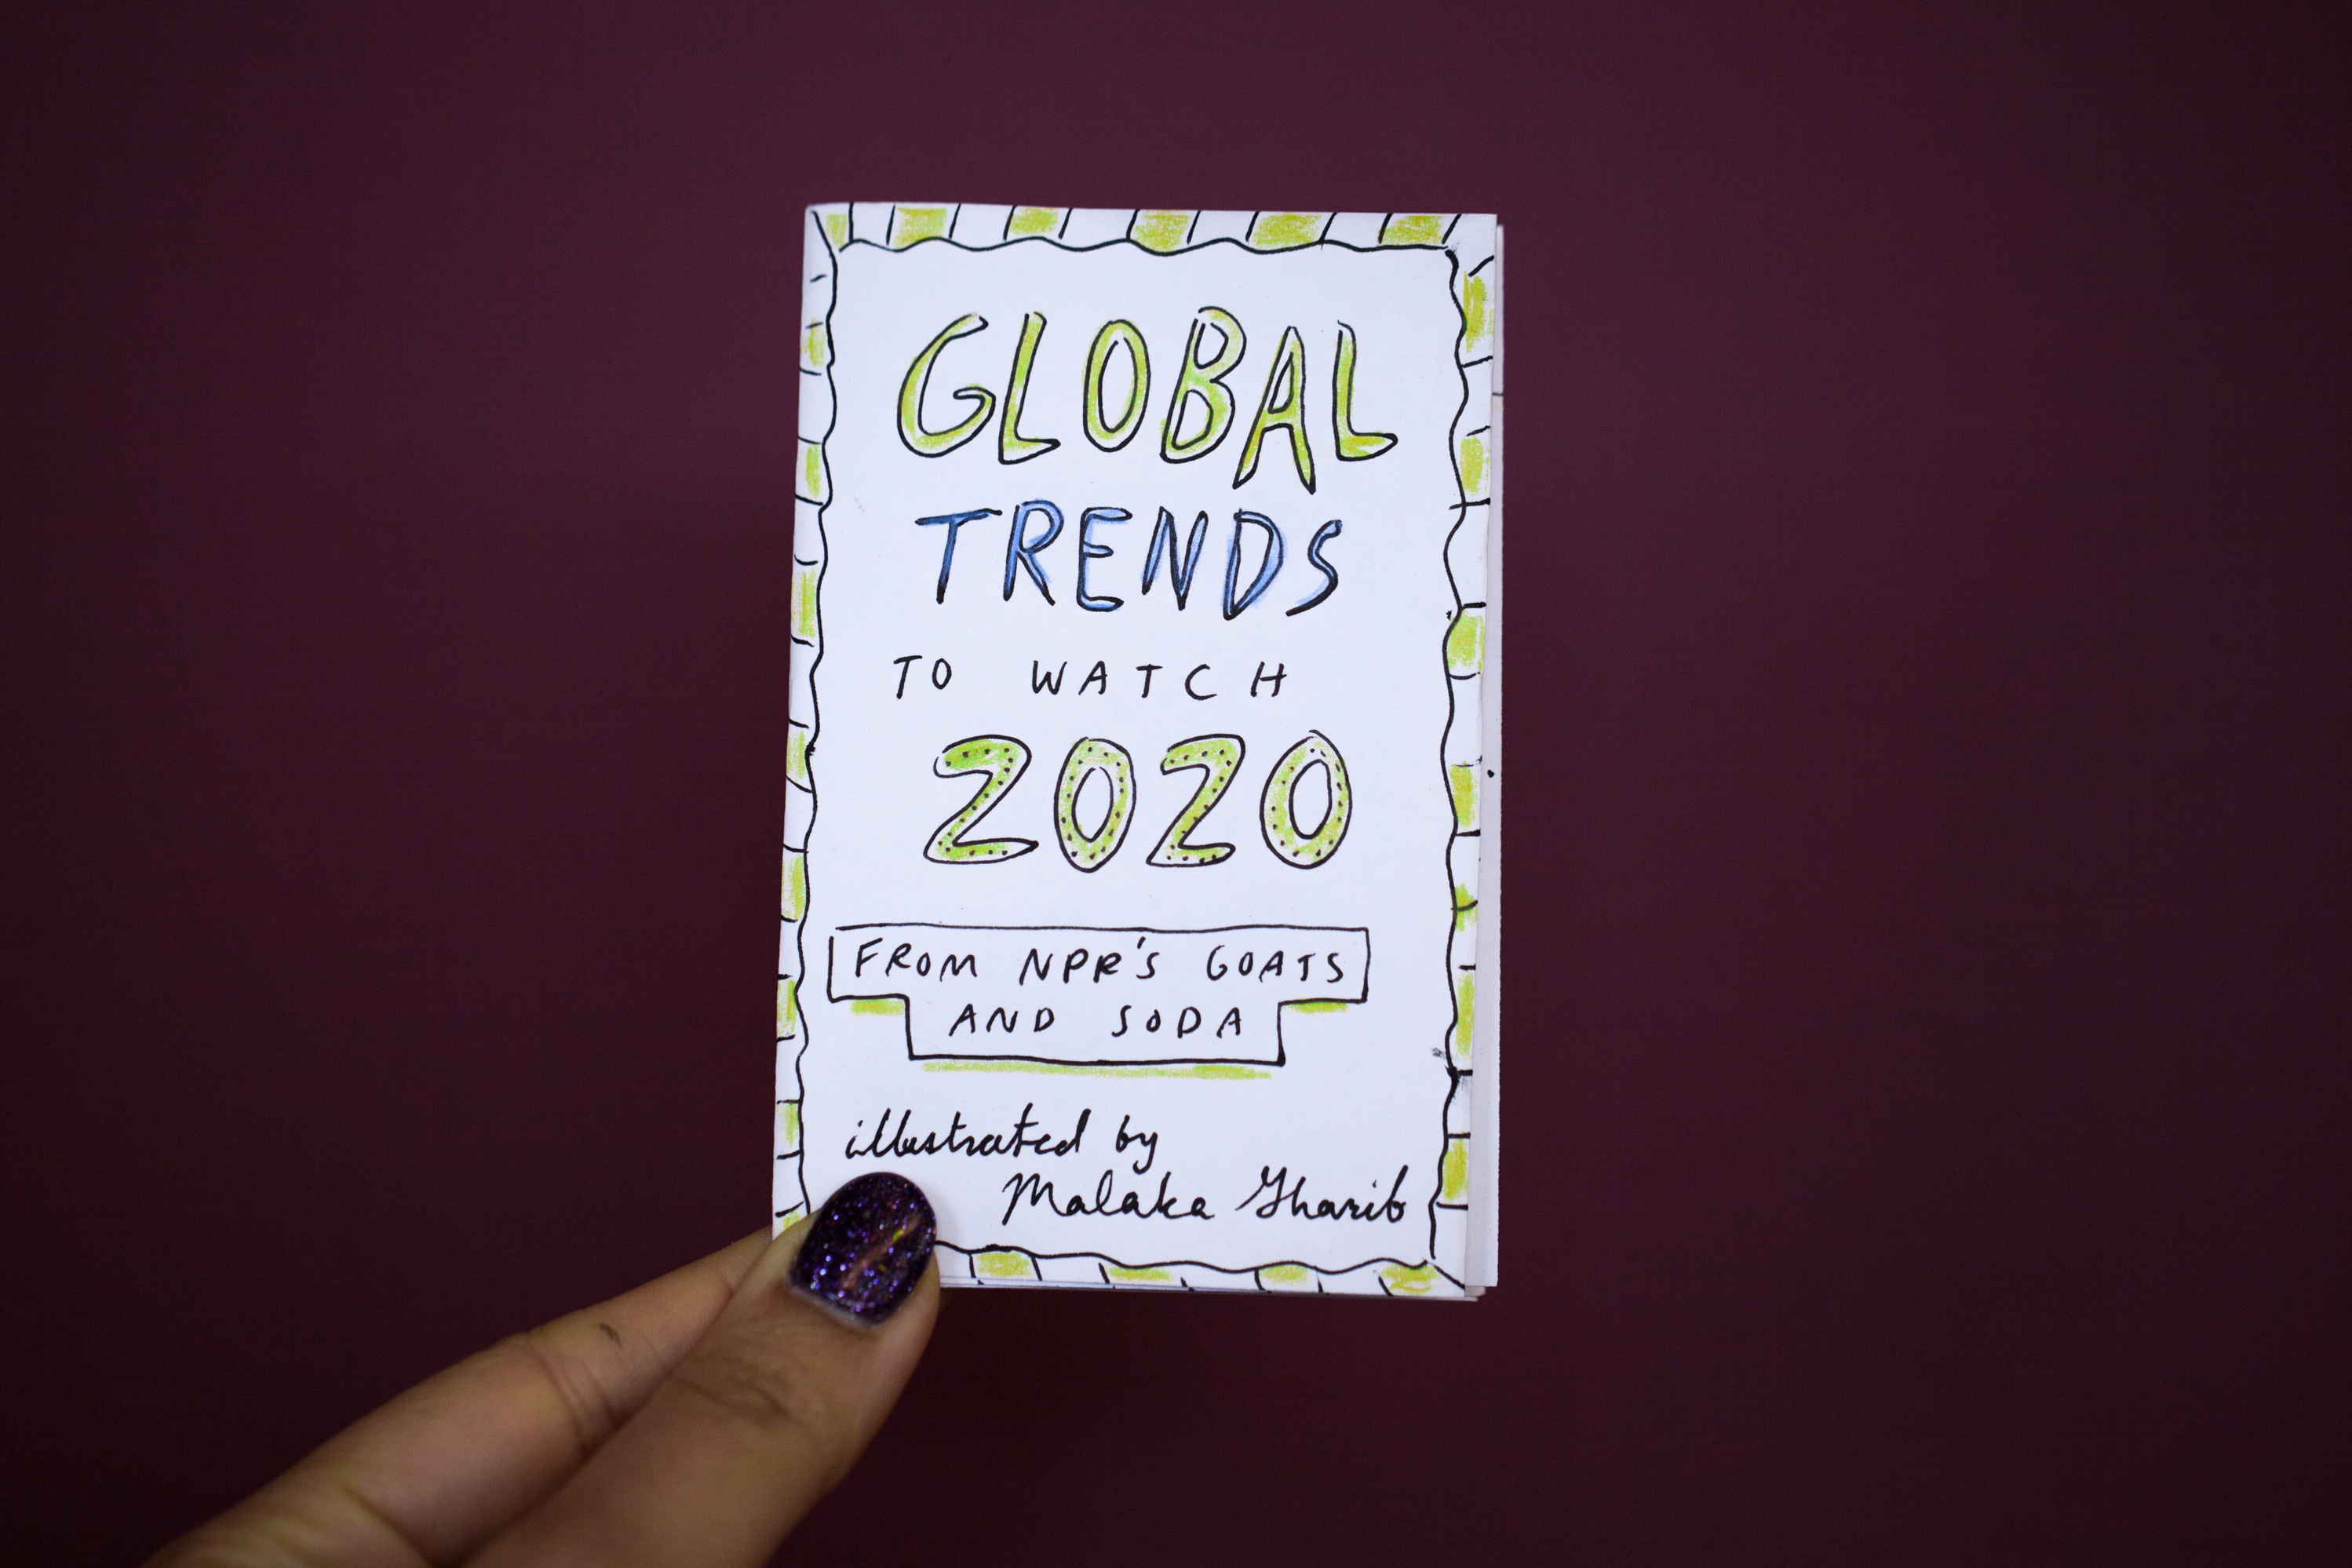 GLOBAL
TRENDS
TO WATCH
2020
FROM NPR'S GOATS
AND SODA
illustrated by
Malaka Gharib